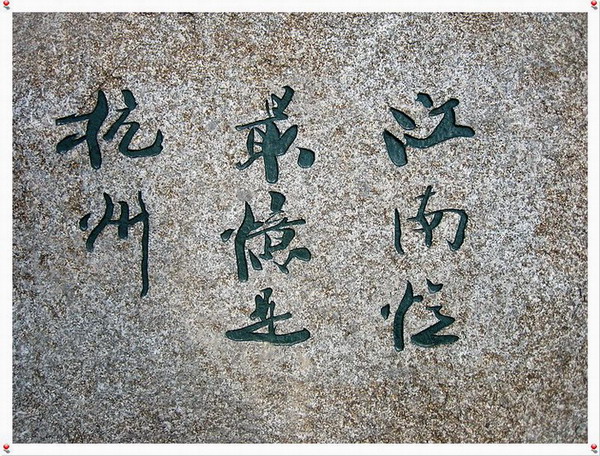 江南忆
最憶是
杭州